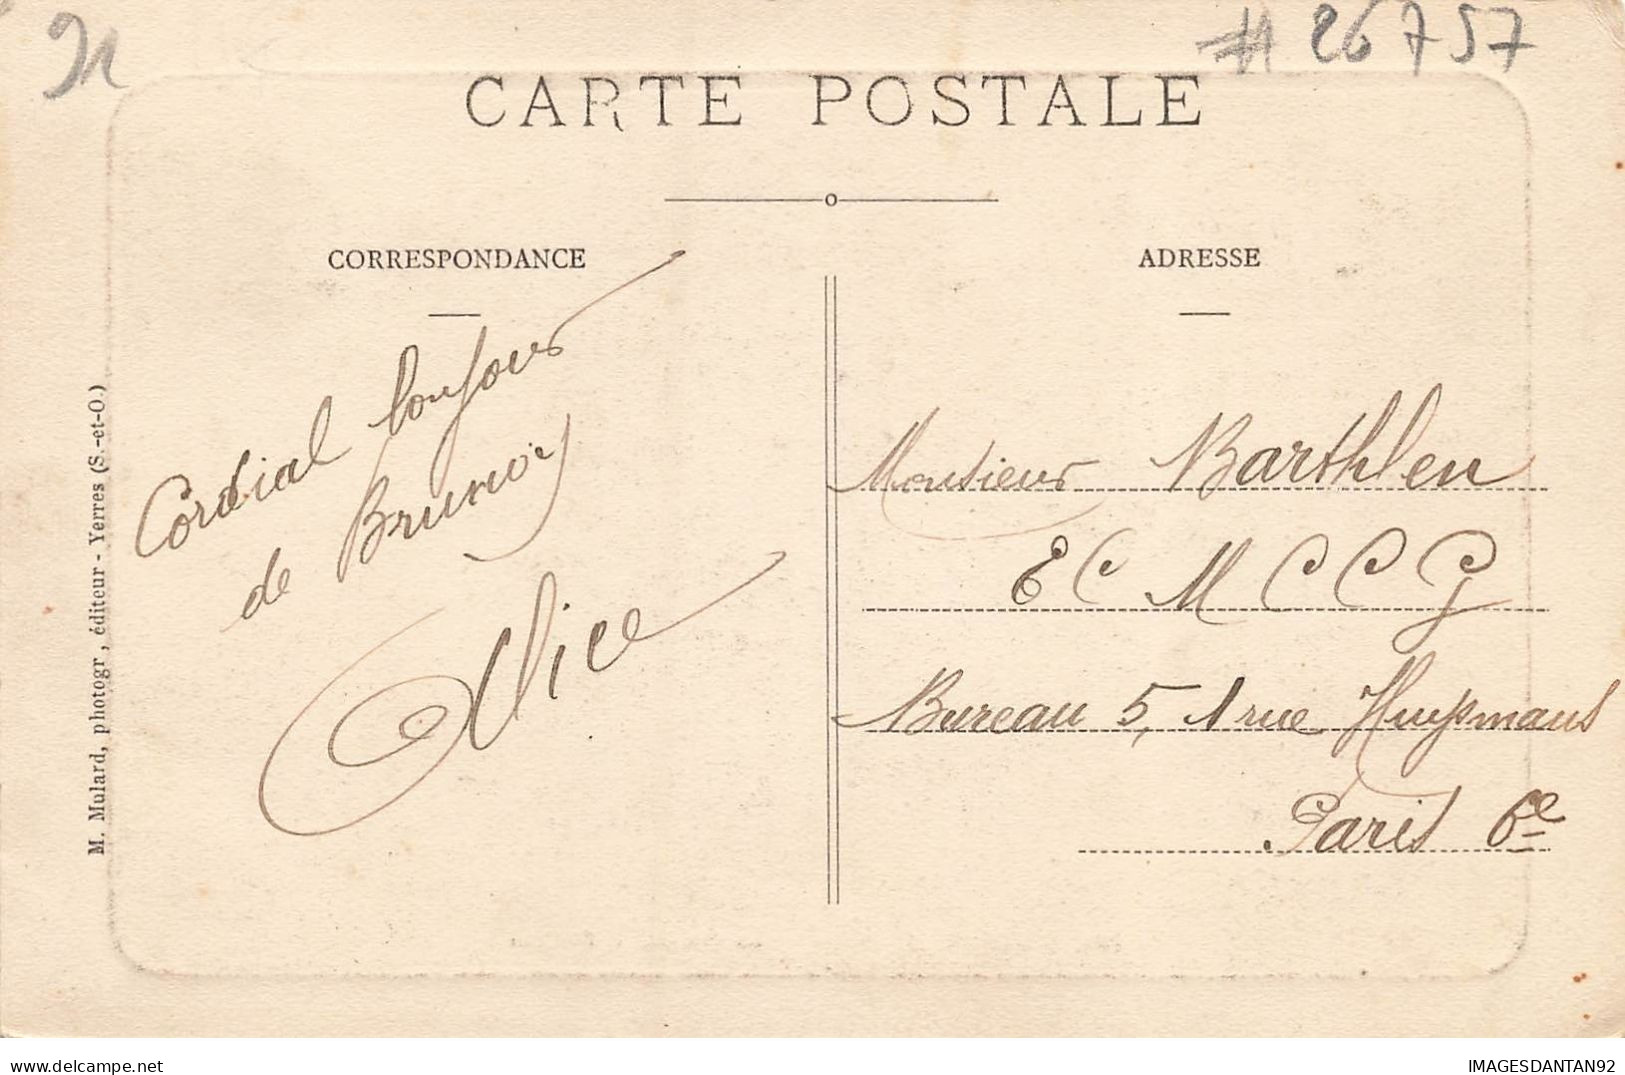 91
# 26757
CARTE POSTALE
CORRESPONDANCE
ADRESSE
Cordial bonjour
de Brunoy
Alice
Monsieur Barthlen
E C M C C G
Bureau 5, 1 rue Huysmans
Paris 6e
M. Mulard, photogr, éditeur - Yerres (S.-et-O.)
IMAGESDANTAN92